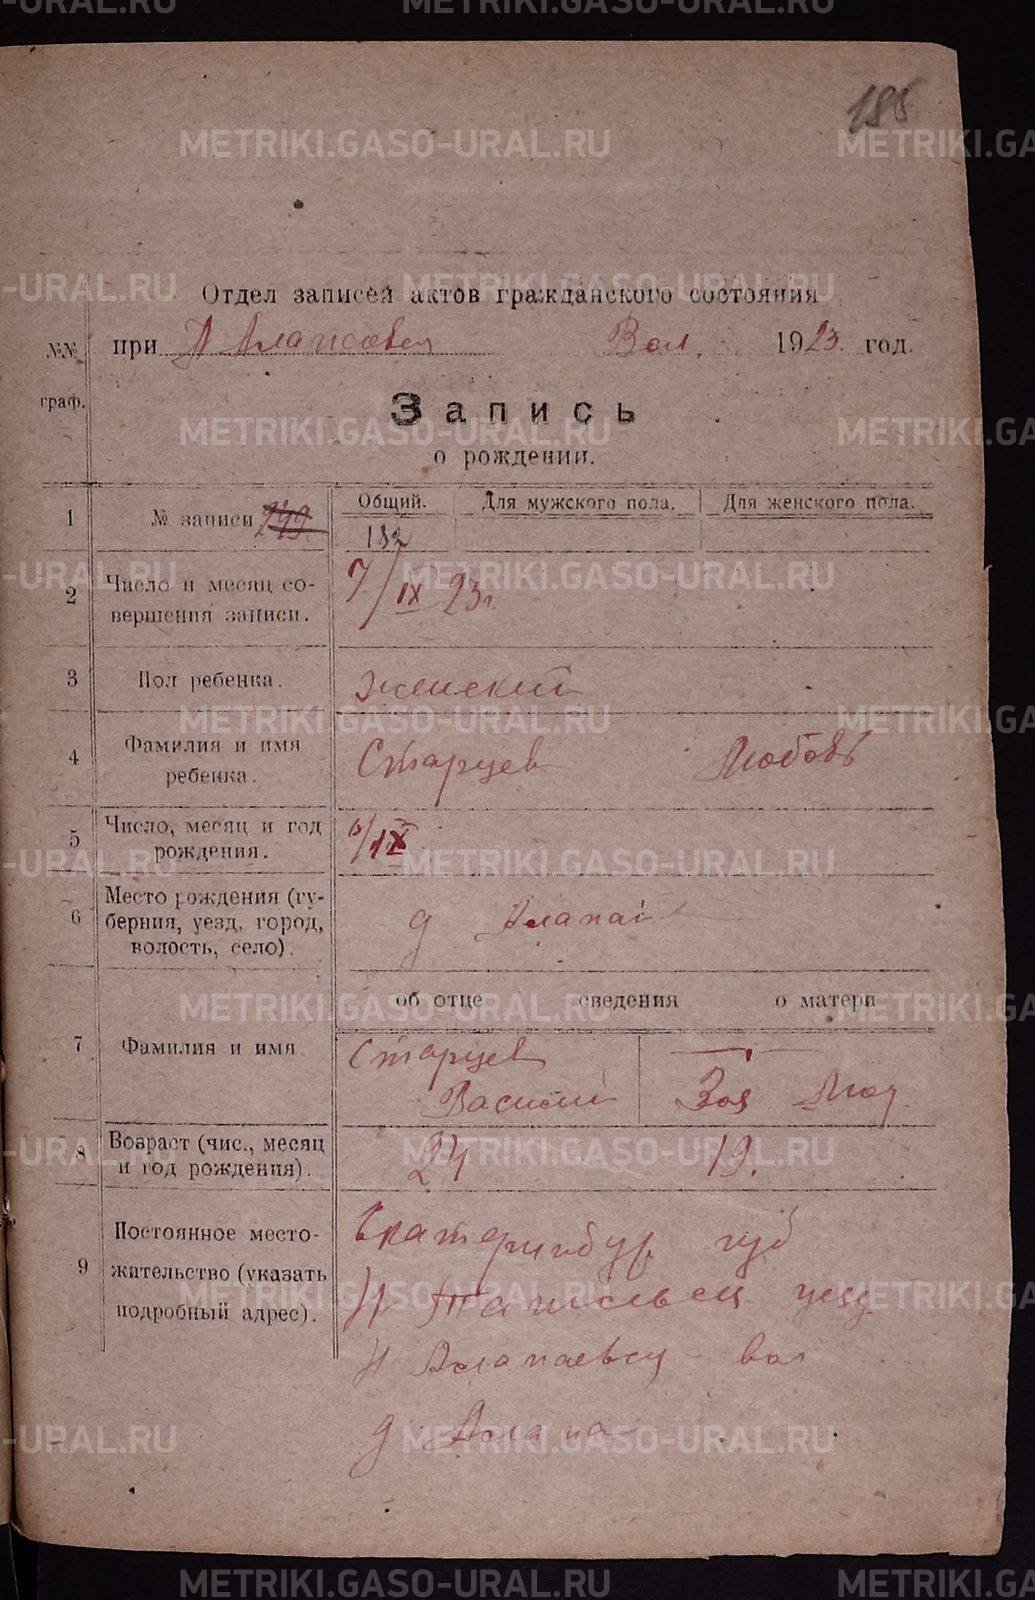 185
Отдел записей актов гражданского состояния
при Н Алапаевск Вол. 1923 год.
№№
граф.
Запись
о рождении.
1 № записи 249 Общий. Для мужского пола. Для женского пола.
132
2 Число и месяц со-
вершения записи. 7/IX 23 г.
3 Пол ребенка. женский
4 Фамилия и имя
ребенка. Старцев Любовь
5 Число, месяц и год
рождения. /IX
6 Место рождения (гу-
берния, уезд, город,
волость, село). д Алапаи
об отце сведения о матери
7 Фамилия и имя Старцев
Василий Зоя
8 Возраст (чис., месяц
и год рождения). 24 19.
9 Постоянное место-
жительство (указать
подробный адрес). Екатеринбур губ
Н Тагильск уезд
Н Алапаевск вол
д Алапа
METRIKI.GASO-URAL.RU